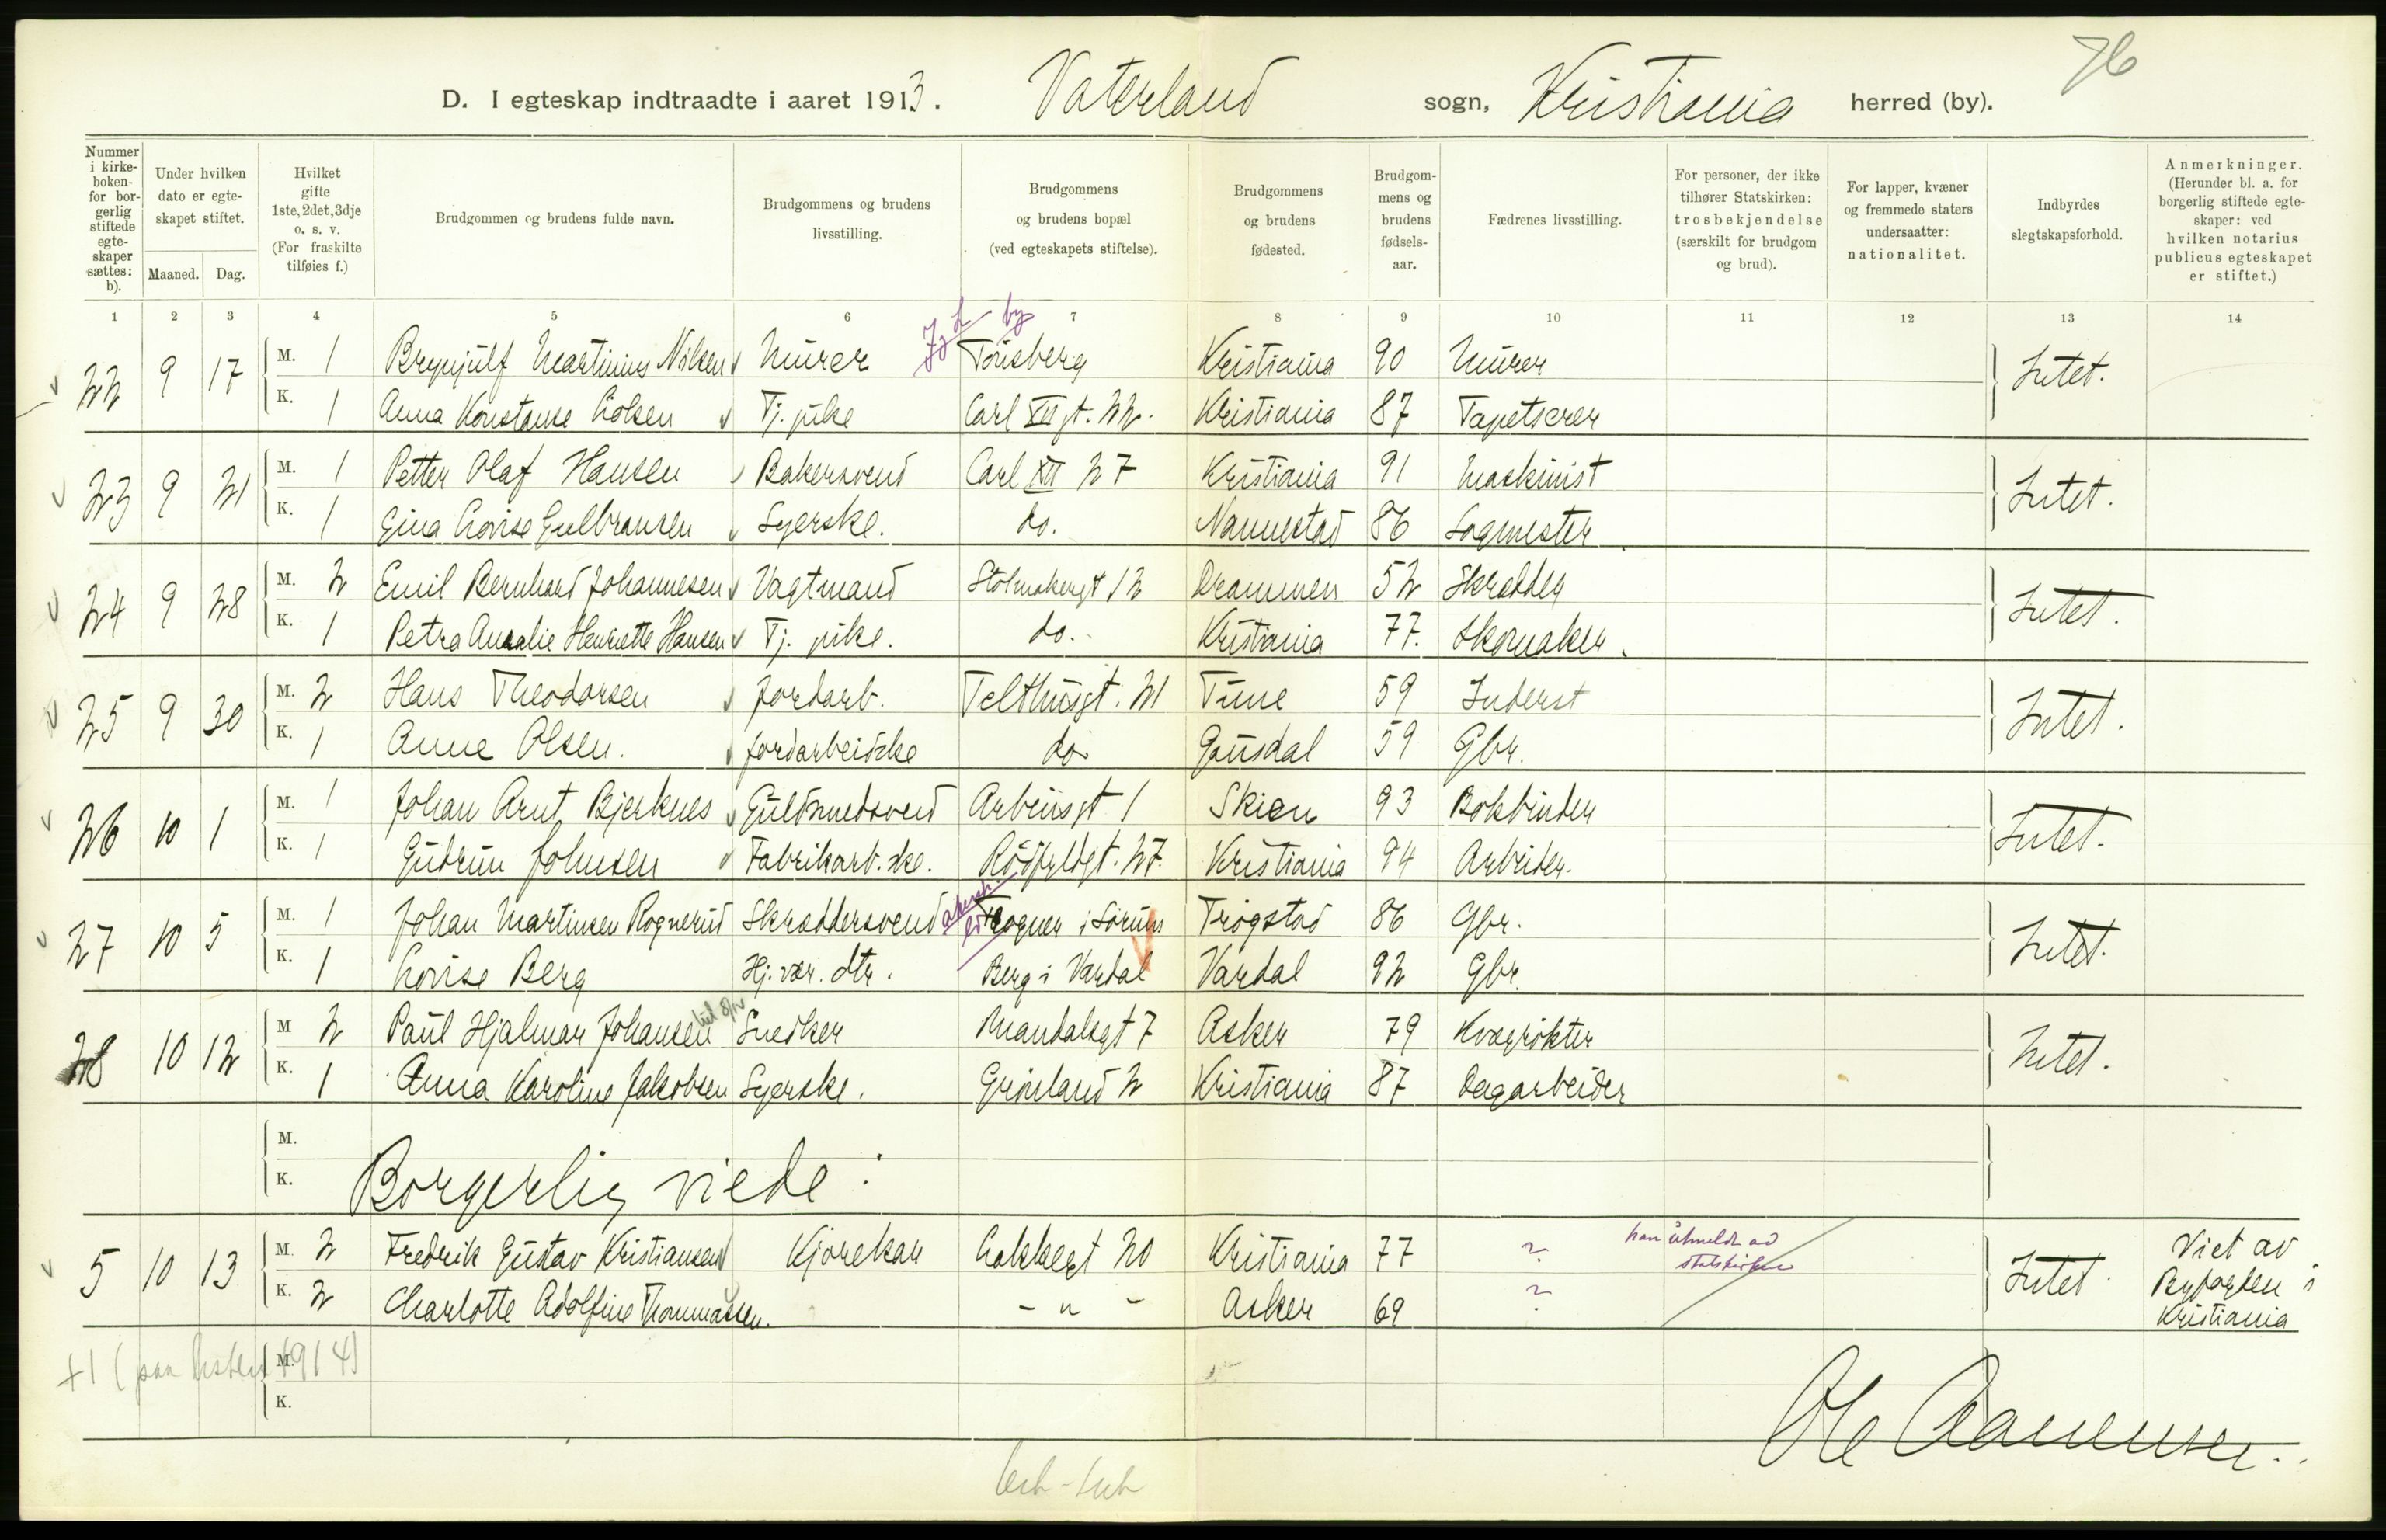 76
D. I egteskap indtraadte i aaret 1913. Vaterland sogn, Kristiania herred (by).
Nummer i kirke-boken- for bor-gerlig stiftede egte-skaper sættes: b). | Under hvilken dato er egte-skapet stiftet. Maaned. Dag. | Hvilket gifte 1ste, 2det, 3dje o. s. v. (For fraskilte tilføies f.) | Brudgommen og brudens fulde navn. | Brudgommens og brudens livsstilling. | Brudgommens og brudens bopæl (ved egteskapets stiftelse). | Brudgommens og brudens fødested. | Brudgom-mens og brudens fødsels-aar. | Fædrenes livsstilling. | For personer, der ikke tilhører Statskirken: trosbekjendelse (særskilt for brudgom og brud). | For lapper, kvæner og fremmede staters undersaatter: nationalitet. | Indbyrdes slegtskapsforhold. | Anmerkninger. (Herunder bl. a. for borgerlig stiftede egte-skaper: ved hvilken notarius publicus egteskapet er stiftet.)
1 2 3 4 5 6 7 8 9 10 11 12 13 14
by
22 9 17 M. 1 Brynjulf Martinius Nilsen Murer Tönsberg Kristiania 90 Murer Intet.
K. 1 Anna Konstanse Colsen Tj. pike Carl XII gt. 22. Kristiania 87 Tapetserer
23 9 21 M. 1 Petter Olaf Hansen Bakersvend Carl XII 27 Kristiania 91 Maskinist Intet.
K. 1 Gina Lovise Gulbransen Syerske. do. Nannestad 86 Sagmester
24 9 28 M. 2 Emil Bernhard Johannesen Vagtmand Stolmakergt 12 Drammen 52 Skrædder Intet.
K. 1 Petra Amalie Henriette Hansen Tj. pike. do. Kristiania 77. Skomaker.
25 9 30 M. 2 Hans Theodorsen Jordarb. Telthusgt. 21 Tune 59 Inderst Intet.
K. 1 Anne Olsen. Jordarbeidske do Gausdal 59 Gbr.
26 10 1 M. 1 Johan Arnt Bjerknes Guldsmedsvend Arbeiersgt 1 Skien 93 Bokbinder Intet.
K. 1 Gudrun Johnsen Fabrikarb.ske. Rödfyldgt. 27. Kristiania 94 Arbeider.
27 10 5 M. 1 Johan Martinsen Rognerud Skræddersvend Fogner i Sörum Trögstad 86 Gbr. Intet.
K. 1 Lovise Berg Hj. vær. dtr. Berg i Vardal Vardal 92 Gbr.
28 10 12 M 2 Paul Hjalmar Johansen Snedker Mandalsgt 7 Asker 79 Kvægrökter Intet.
K. 1 Anna Karoline Jakobsen Syerske. Grönland 2 Kristiania 87 Dagarbeider
M.
K. Borgerlig viede:
5 10 13 M. 2 Fredrik Gustav Kristiansen Kjörekar Lakkegt 20 Kristiania 77 ? han utmeldt av statskirken Intet. Viet av Byfogden i Kristiania
K. 2 Charlotte Adolfine Thommassen. - " - Asker 69 ?
+1 (paa listen 1914) M.
K.
Ole